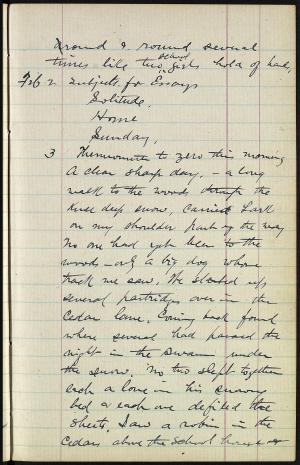 around & round several
times like two school girls hold of hands,
Feb 2 Subjects for Essays
Solitude,
Home
Sunday,
3 Thermometer to zero this morning
A clear sharp day, – a long
walk to the woods through the
knee deep snow, Carried Lark
on my shoulder part of the way
No one had yet been to the
woods – only a big dog whose
track we saw, We started up
several partridges over in the
Cedar lane, Coming back found
where several had passed the
night in the swamp under
the snow. No two slept together
each a lone in his snowy
bed & each one defiled the
sheets, Saw a robin in the
Cedars above the school house